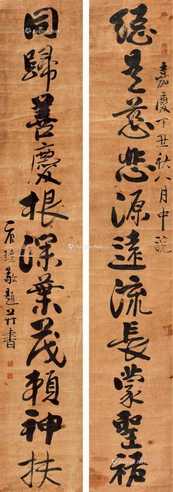 嘉慶丁丑秋八月中浣
總是慈悲源遠流長蒙聖祐
同歸善慶根深葉茂賴神扶
敬題并書